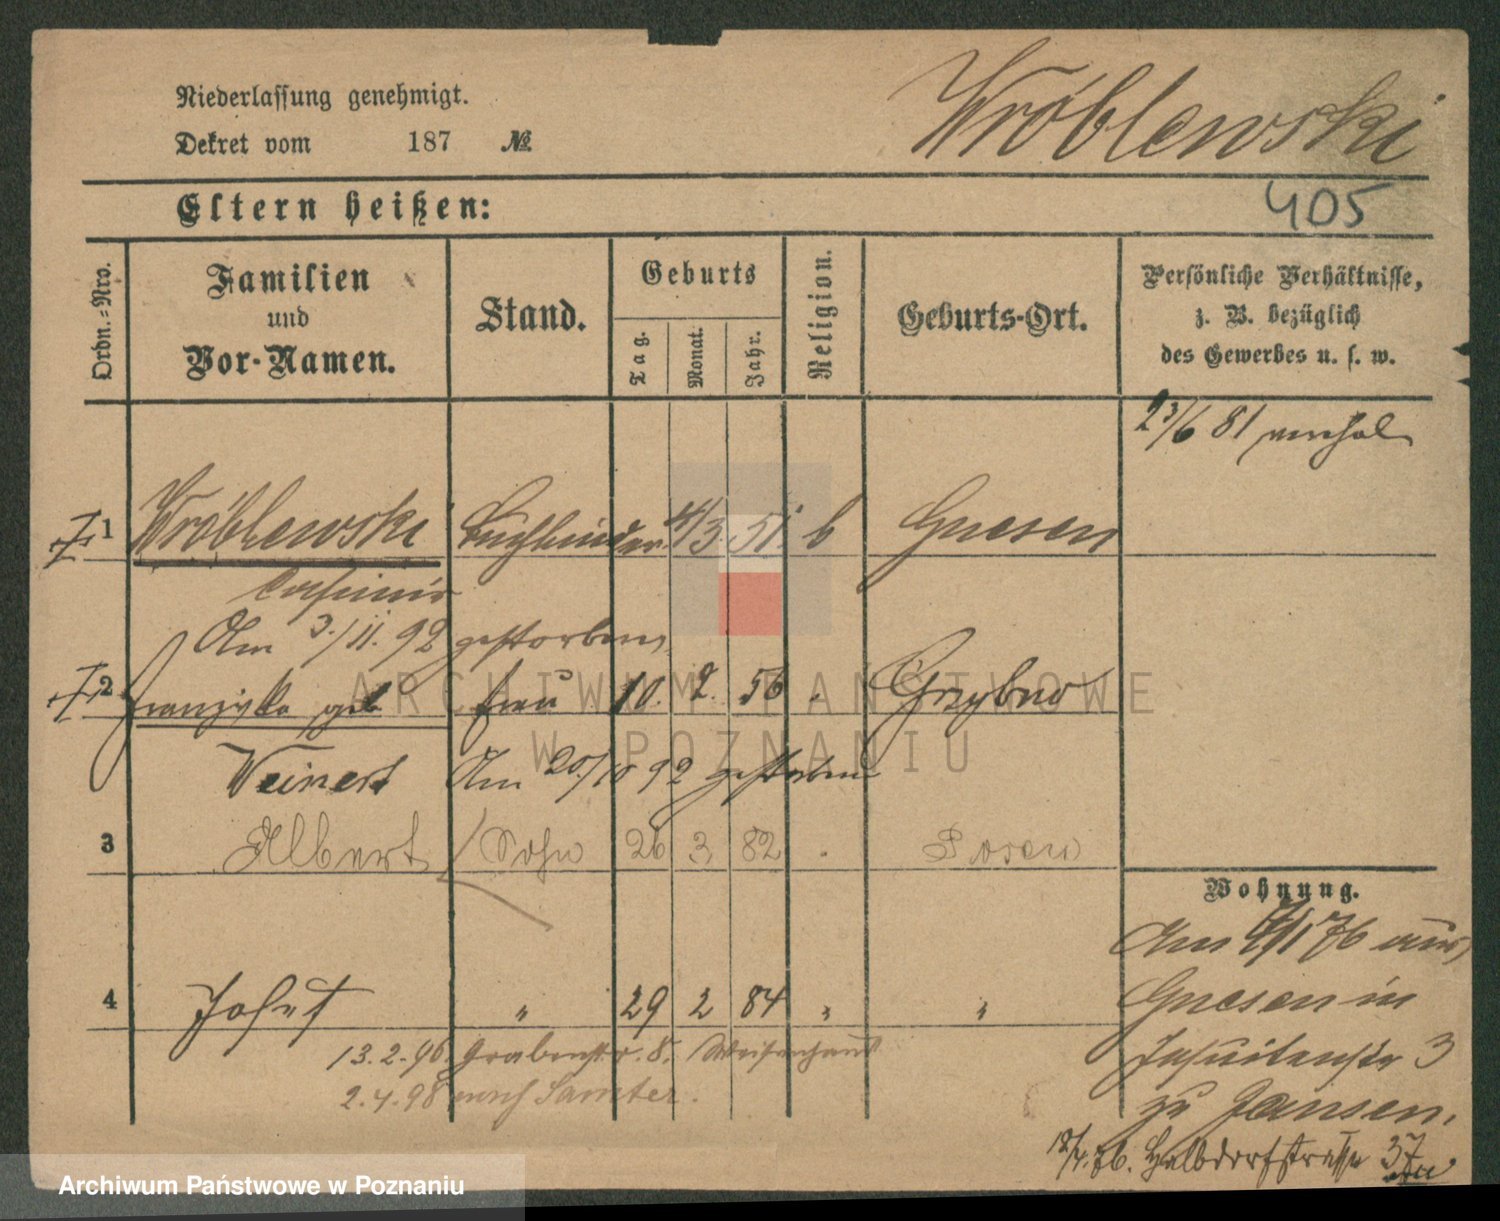 Niederlassung genehmigt.
Wróblewski
Dekret vom 187 №
405
Eltern heißen:
Ordn.-Nro.
Familien und Vor-Namen.
Stand.
Geburts
Tag.
Monat.
Jahr.
Religion.
Geburts-Ort.
Persönliche Verhältnisse,
z. B. bezüglich
des Gewerbes u. s. w.
23/6 81
1 Wróblewski Buchbinder 4/3 51. b Gnesen
Casimir
Am 3./11. 92 gestorben
2 Franziska geb. Frau 10. 2. 56 Grzybno
Weinert Am 20./10 92 gestorben
3 Albert Sohn 26 3. 82 Posen
Wohnung.
Am 4/1 76 aus
Gnesen in
Jesuitenstr 3
zu Jansen.
4 Josef " 29 2 84 " "
13.2.96. Grabenstr. 8. Waisenhaus
2.4.98 nach Samter.
18/4.76. Halbdorfstrasse 37
ARCHIWUM PAŃSTWOWE
W POZNANIU
Archiwum Państwowe w Poznaniu